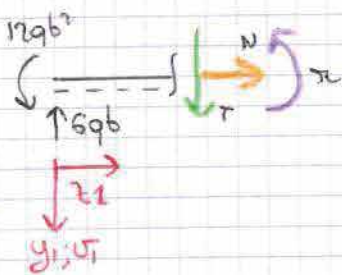 12qb²
N
M
T
6qb
z1
y1; v1